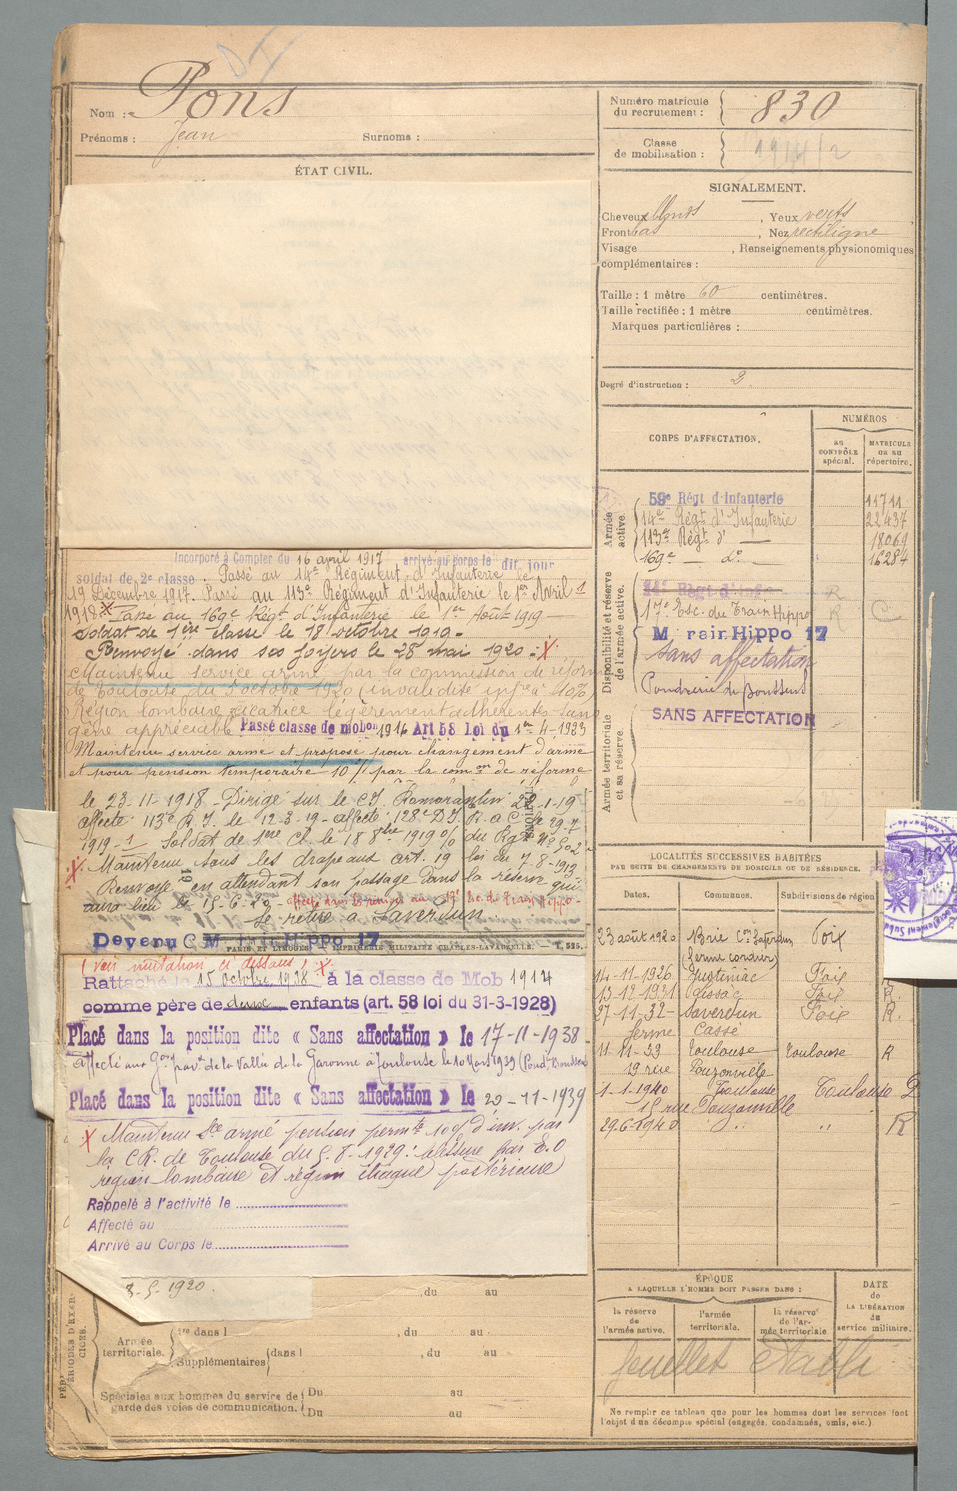 Nom : Pons
Prénoms : Jean Surnoms :
Numéro matricule du recrutement : 830
Classe de mobilisation : 1914/2
ÉTAT CIVIL.
SIGNALEMENT.
Cheveux blonds, Yeux verts,
Front bas, Nez rectiligne
Visage , Renseignements physionomiques
complémentaires :
Taille : 1 mètre 60 centimètres.
Taille rectifiée : 1 mètre centimètres.
Marques particulières :
Degré d'instruction : 2
CORPS D'AFFECTATION.
NUMÉROS
au CONTRÔLE spécial.
MATRICULE ou au répertoire.
Armée active.
59e Régt d'Infanterie 11711
14e Régt d'Infanterie 22437
113me Régt d° — 18069
169e — d°- 16284
Disponibilité et réserve de l'armée active.
R
17e Esc. du Train Hippo R C
M rair Hippo 17
sans affectation
Poudrerie de
SANS AFFECTATION
Armée territoriale et sa réserve.
Incorporé à Compter du 16 avril 1917 arrivé au corps le dit jour
soldat de 2e classe. Passé au 14e Régiment d'Infanterie le
19 Décembre 1917. Passé au 113e Régiment d'Infanterie le 1er Avril 1
1918 X Passé au 169e Régt d'Infanterie le 1er Août 1919 —
Soldat de 1ère classe le 18 octobre 1919 -
Renvoyé dans ses foyers le 28 mai 1920 - X
Maintenu service armé par la commission de réforme
de Toulouse du 5 octobre 1920 (invalidité infre à 10%)
Région lombaire cicatrice légèrement adhérente sans
gêne appréciable Passé classe de mobon 1916 Art 58 Loi du 1er 4-1923
Maintenu service armé et proposé pour changement d'arme
et pour pension temporaire 10 % par la comon de réforme
le 23-11-1918 - Dirigé sur le C.I. Romorantin 29-1-19
affecté 113e R.I. le 12-3-19 - affecté 128e D.I.
1919 - 1 Soldat de 1ère cl. le 18 8bre 1919
X Maintenu sous les drapeaux art. 19 loi du 7-8-1913
Renvoyé en attendant son passage dans la réserve qui
aura lieu le
Se retire à Saverdun
Devenu C M rair Hippo 17
PARIS ET LIMOGES — IMPRIMERIE MILITAIRE CHARLES-LAVAUZELLE.
(voir mutation ci dessous) X
Rattaché le 15 octobre 1938 à la classe de Mob 1914
comme père de deux enfants (art. 58 loi du 31-3-1928)
Placé dans la position dite « Sans affectation » le 17-11-1938
Affecté aux de la Vallée de la Garonne à Toulouse le 10 Mars 1939
Placé dans la position dite « Sans affectation » le 20-11-1939
X Maintenu Sce armé pension permte 10% d'inv. par
la C.R. de Toulouse du 5-8-1929 : blessure par E.O
région lombaire et région iliaque postérieure
Rappelé à l'activité le
Affecté au
Arrivé au Corps le
LOCALITÉS SUCCESSIVES HABITÉES
PAR SUITE DE CHANGEMENTS DE DOMICILE OU DE RÉSIDENCE.
Dates. Communes. Subdivisions de région
23 août 1920 Brie Con Saverdun Foix
14-11-1926 Justiniac Foix R
13-12-1931 Gissac Foix R.
27-11-32 - Saverdun Foix R.
ferme Cassé
11-11-33 Toulouse Toulouse R
19 rue Pouzonville
1-1-1940 Toulouse Toulouse D
15 rue Pouzonville
29-6-1940 " " R
ÉPOQUE
A LAQUELLE L'HOMME DOIT PASSER DANS :
la réserve de l'armée active.
l'armée territoriale.
la réserve de l'armée territoriale
DATE de LA LIBÉRATION du service militaire.
feuillet établi
PÉRIODES D'EXERCICES.
8-5-1920. , du au
Armée territoriale.
1re dans l , du au
Supplémentaires dans l , du au
Spéciales aux hommes du service de garde des voies de communication.
Du au
Du au
Ne remplir ce tableau que pour les hommes dont les services font
l'objet d'un décompte spécial (engagés, condamnés, omis, etc.)